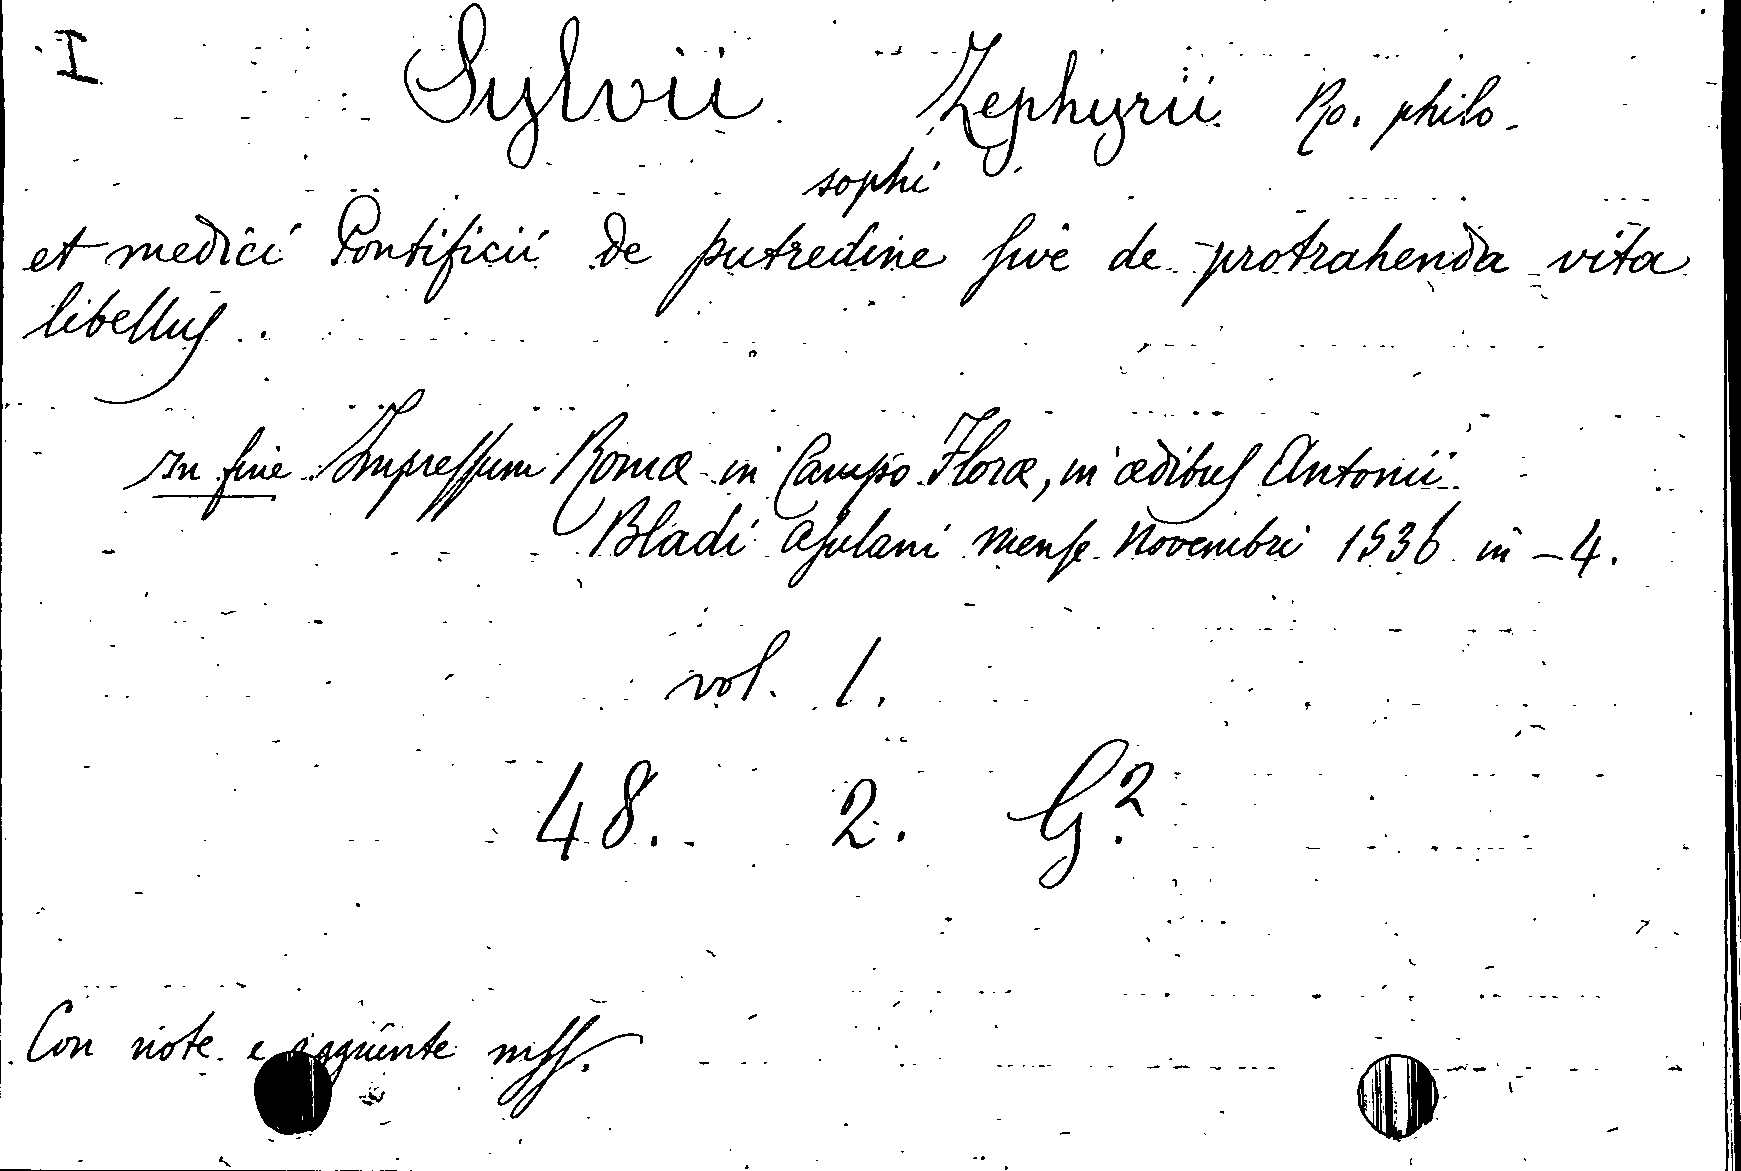 I
Sylvii Zephyrii Ro. philo-
sophi
et medici Pontificii de putredine sive de protrahenda vita
libellus.
In fine Impressum Romæ in Campo Floræ, in ædibus Antonii
Bladi Asulani mense Novembri 1536 in-4.
vol. 1.
48. 2. G.2
Con note e aggiunte mss.